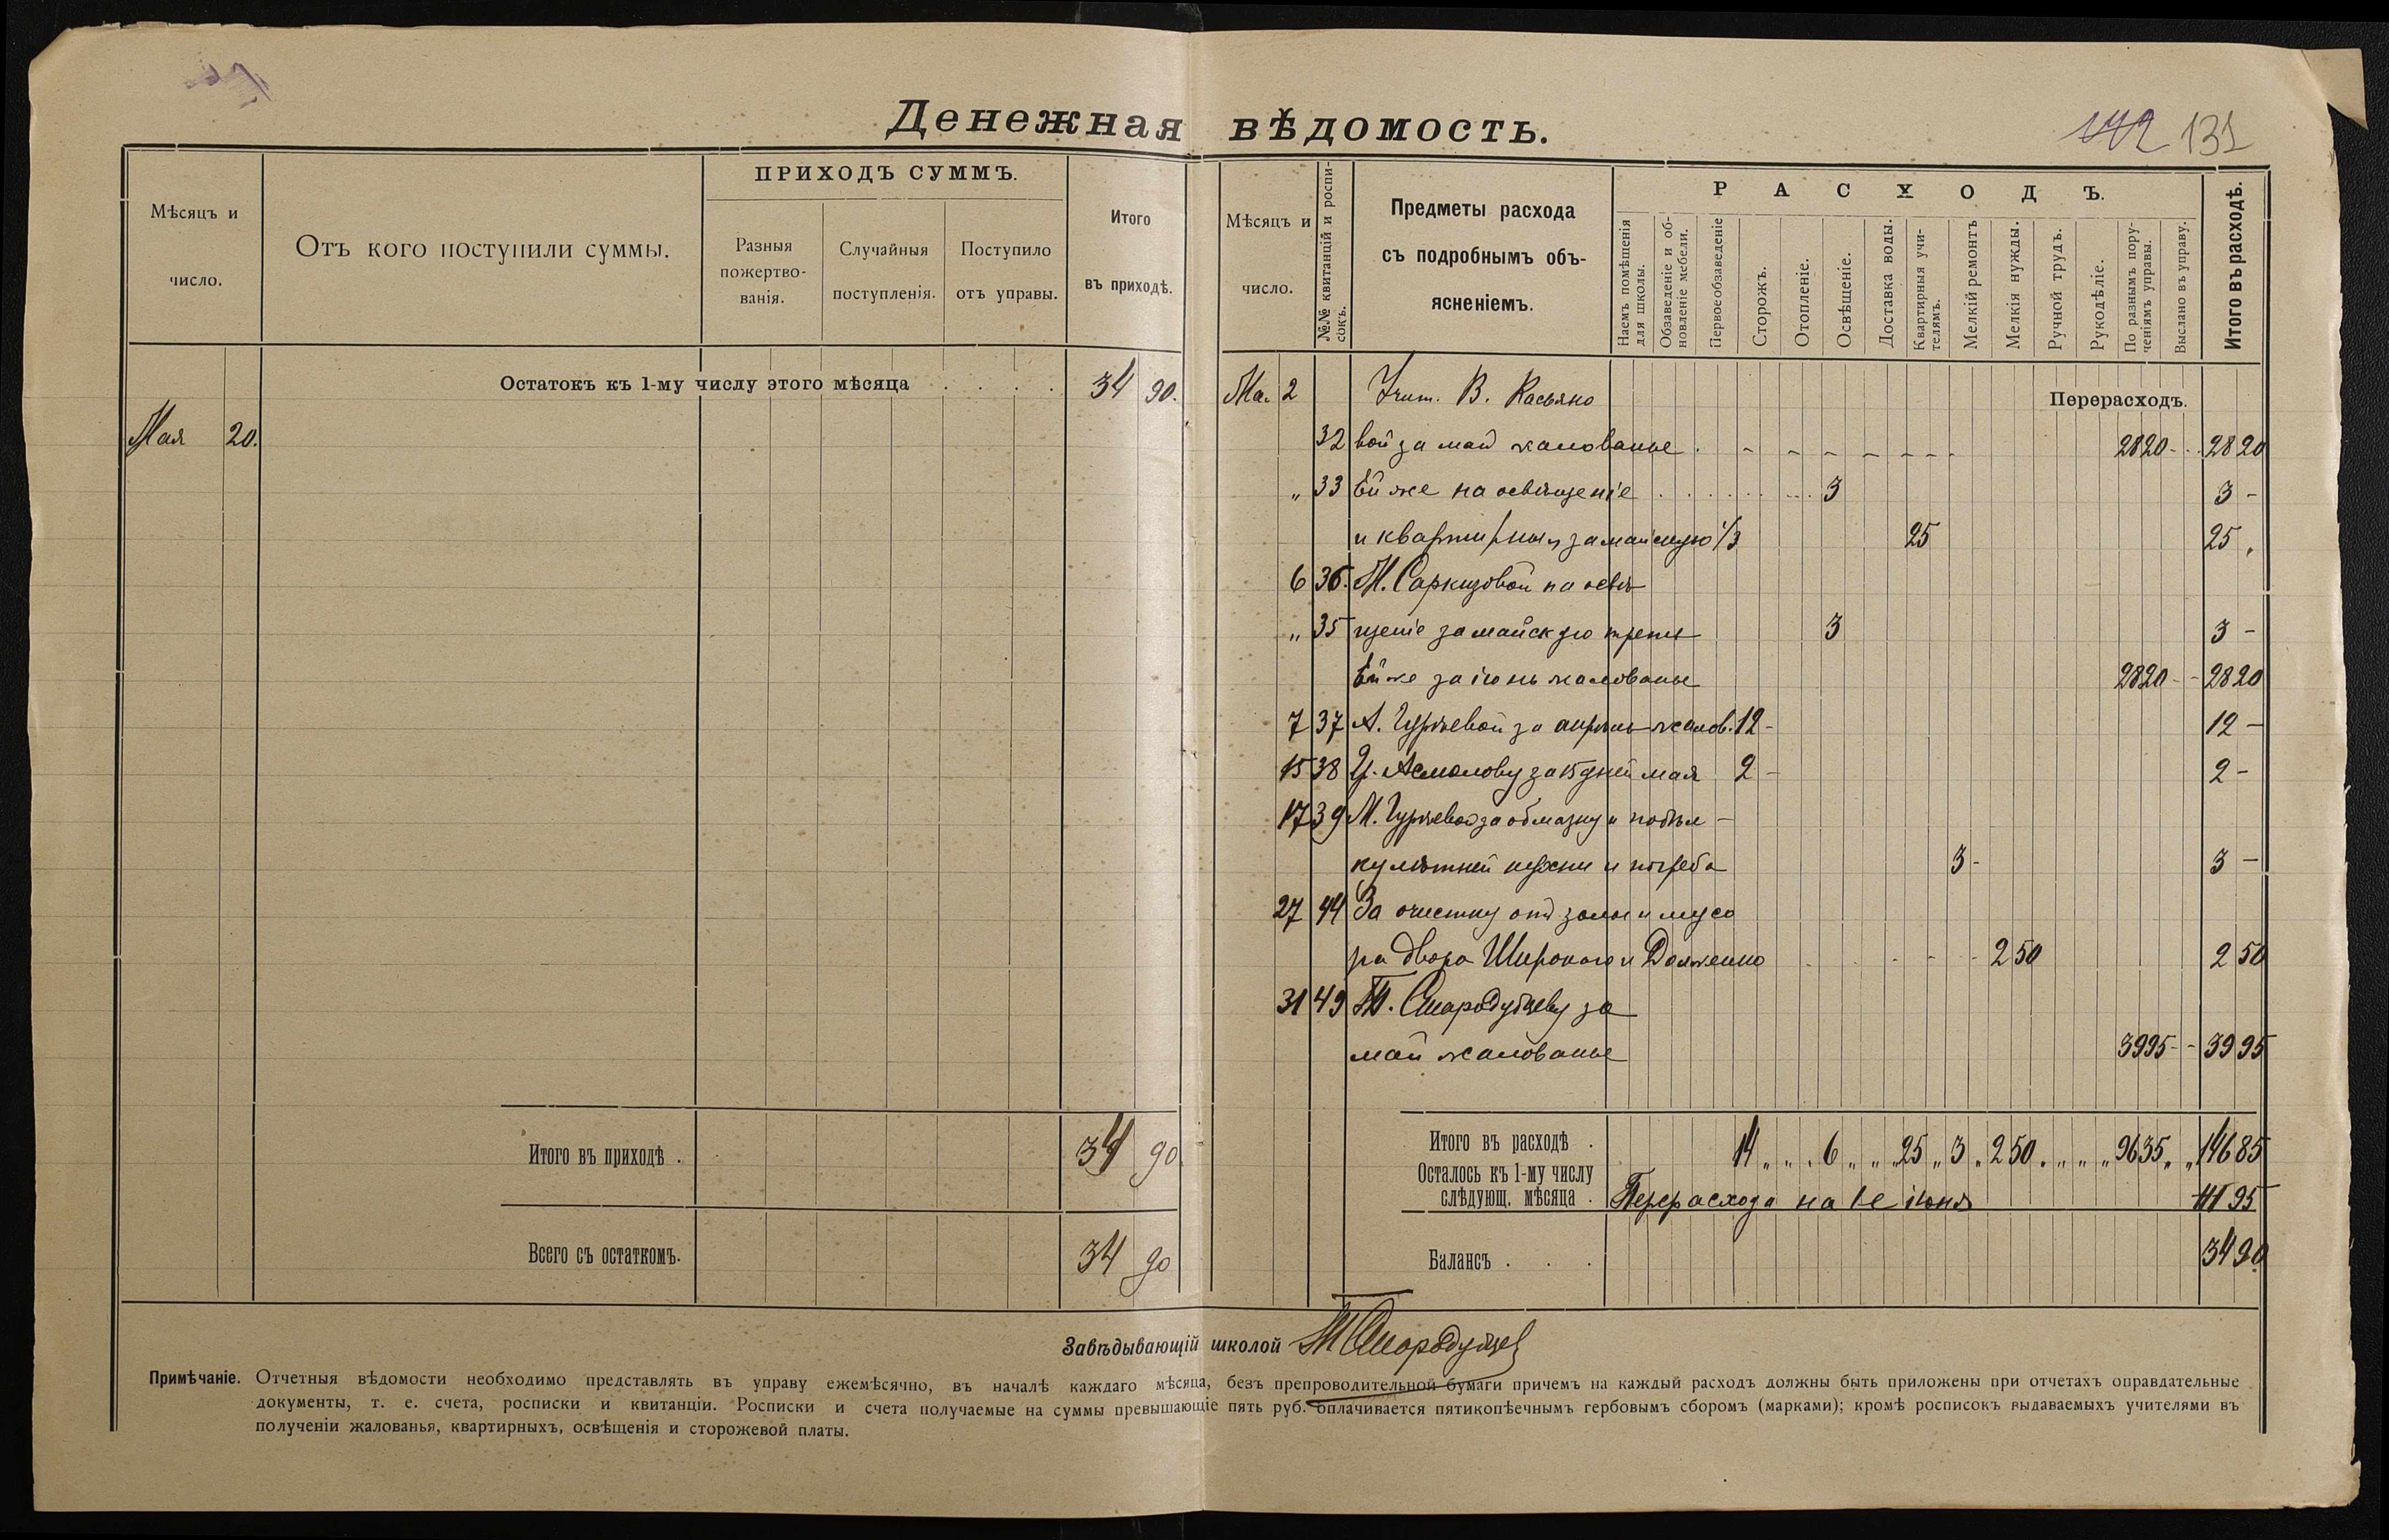 Денежная вѣдомость.
142 131
Мѣсяцъ и число.
Отъ кого поступили суммы.
ПРИХОДЪ СУММЪ.
Разныя пожертво-
ванія.
Случайныя поступленія.
Поступило отъ управы.
Итого въ приходѣ.
Мѣсяцъ и число.
№№ квитанцій и роспи-
сокъ.
Предметы расхода
съ подробнымъ объ-
ясненіемъ.
РАСХОДЪ.
Наемъ помѣщенія для школы.
Обзаведеніе и об-
новленіе мебели.
Первообзаведеніе
Сторожъ.
Отопленіе.
Освѣщеніе.
Доставка воды.
Квартирныя учи-
телямъ.
Мелкій ремонтъ
Мелкія нужды.
Ручной трудъ.
Рукодѣліе.
По разнымъ пору-
ченіямъ управы.
Выслано въ управу.
Итого въ расходѣ.
Остатокъ къ 1-му числу этого мѣсяца . . . . 34 90.
Мая 20.
Ма. 2 Учит. В. Касьяно
Перерасходъ.
32 вой за май жалованье 28 20 28 20
„ 33 Ей же на освѣщеніе 3 3 -
и квартирныя за майскую 1/3 25 25
6 36. М. Саркизовой на освѣ
„ 35 щеніе за майскую треть 3 3 -
Ей же за іюнь жалованье 28 20 28 20
7 37 А. Гурьевой за апрѣль жалов. 12 - 12 -
15 38 Асмолову за 15 дней мая 2 - 2 -
17 39 М. Гурьевой за обмазку и побѣл -
ку лѣтней кухни и погреба 3 - 3 -
27 44 За очистку отъ золы и мусо
ра двора Широкаго и Долженко 2 50 2 50
31 49 Т. Стародубцеву за
май жалованье 39 95 39 95
Итого въ приходѣ . 34 90
Всего съ остаткомъ. 34 90
Итого въ расходѣ . 14 „ „ 6 „ „ 25 „ 3 „ 2 50 „ „ „ „ 96 35 „ „ 146 85
Осталось къ 1-му числу
слѣдующ. мѣсяца . Перерасхода на 1е іюня 111 95
Балансъ . . . 34 90
Завѣдывающій школой Т Стародубцев
Примѣчаніе. Отчетныя вѣдомости необходимо представлять въ управу ежемѣсячно, въ началѣ каждаго мѣсяца, безъ препроводительной бумаги причемъ на каждый расходъ должны быть приложены при отчетахъ оправдательные
документы, т. е. счета, росписки и квитанціи. Росписки и счета получаемые на суммы превышающіе пять руб. оплачивается пятикопѣечнымъ гербовымъ сборомъ (марками); кромѣ росписокъ выдаваемыхъ учителями въ
полученіи жалованья, квартирныхъ, освѣщенія и сторожевой платы.